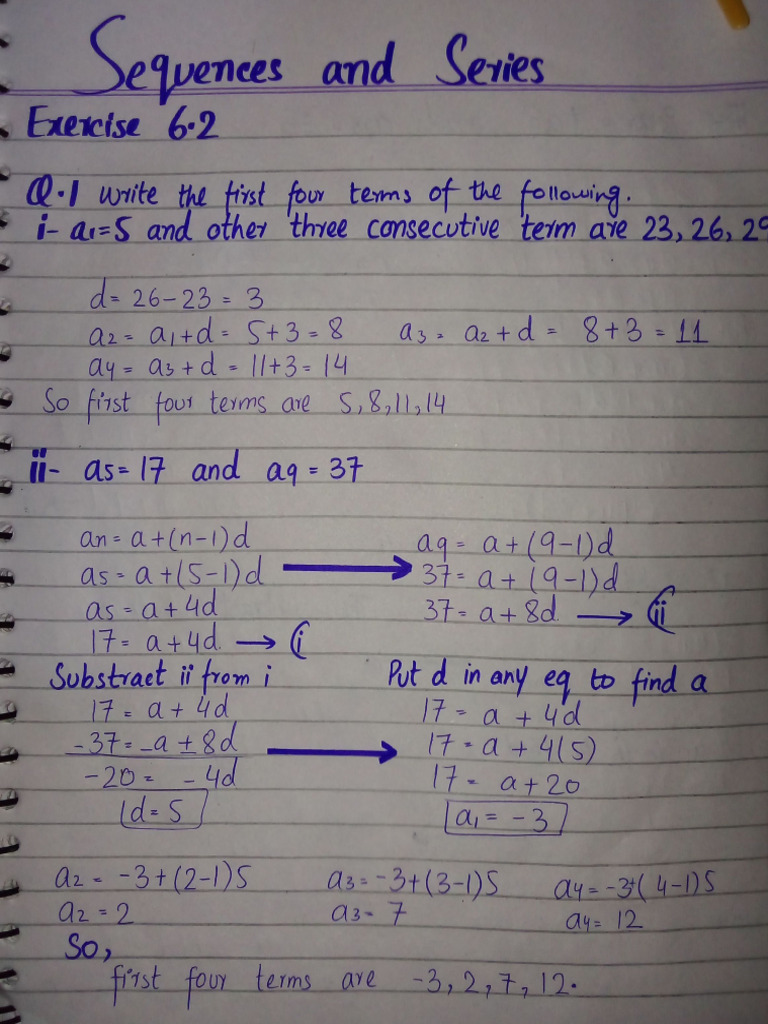 Sequences and Series
Exercise 6.2
Q.1 Write the first four terms of the following.
i- a1=5 and other three consecutive term are 23, 26, 29
d= 26-23 = 3
a2= a1+d= 5+3=8 a3= a2+d= 8+3=11
a4= a3+d= 11+3=14
So first four terms are 5,8,11,14
ii- a5=17 and a9=37
an= a+(n-1)d
a5=a+(5-1)d →
a5=a+4d
17= a+4d → (i
a9= a+(9-1)d
37=a+(9-1)d
37=a+8d → (ii
Substract ii from i
17= a+4d
-37=-a±8d →
-20= -4d
d=5
Put d in any eq to find a
17= a+4d
17=a+4(5)
17= a+20
a1=-3
a2= -3+(2-1)5 a3=-3+(3-1)5 a4=-3+(4-1)5
a2=2 a3=7 a4=12
So,
first four terms are -3, 2, 7, 12.